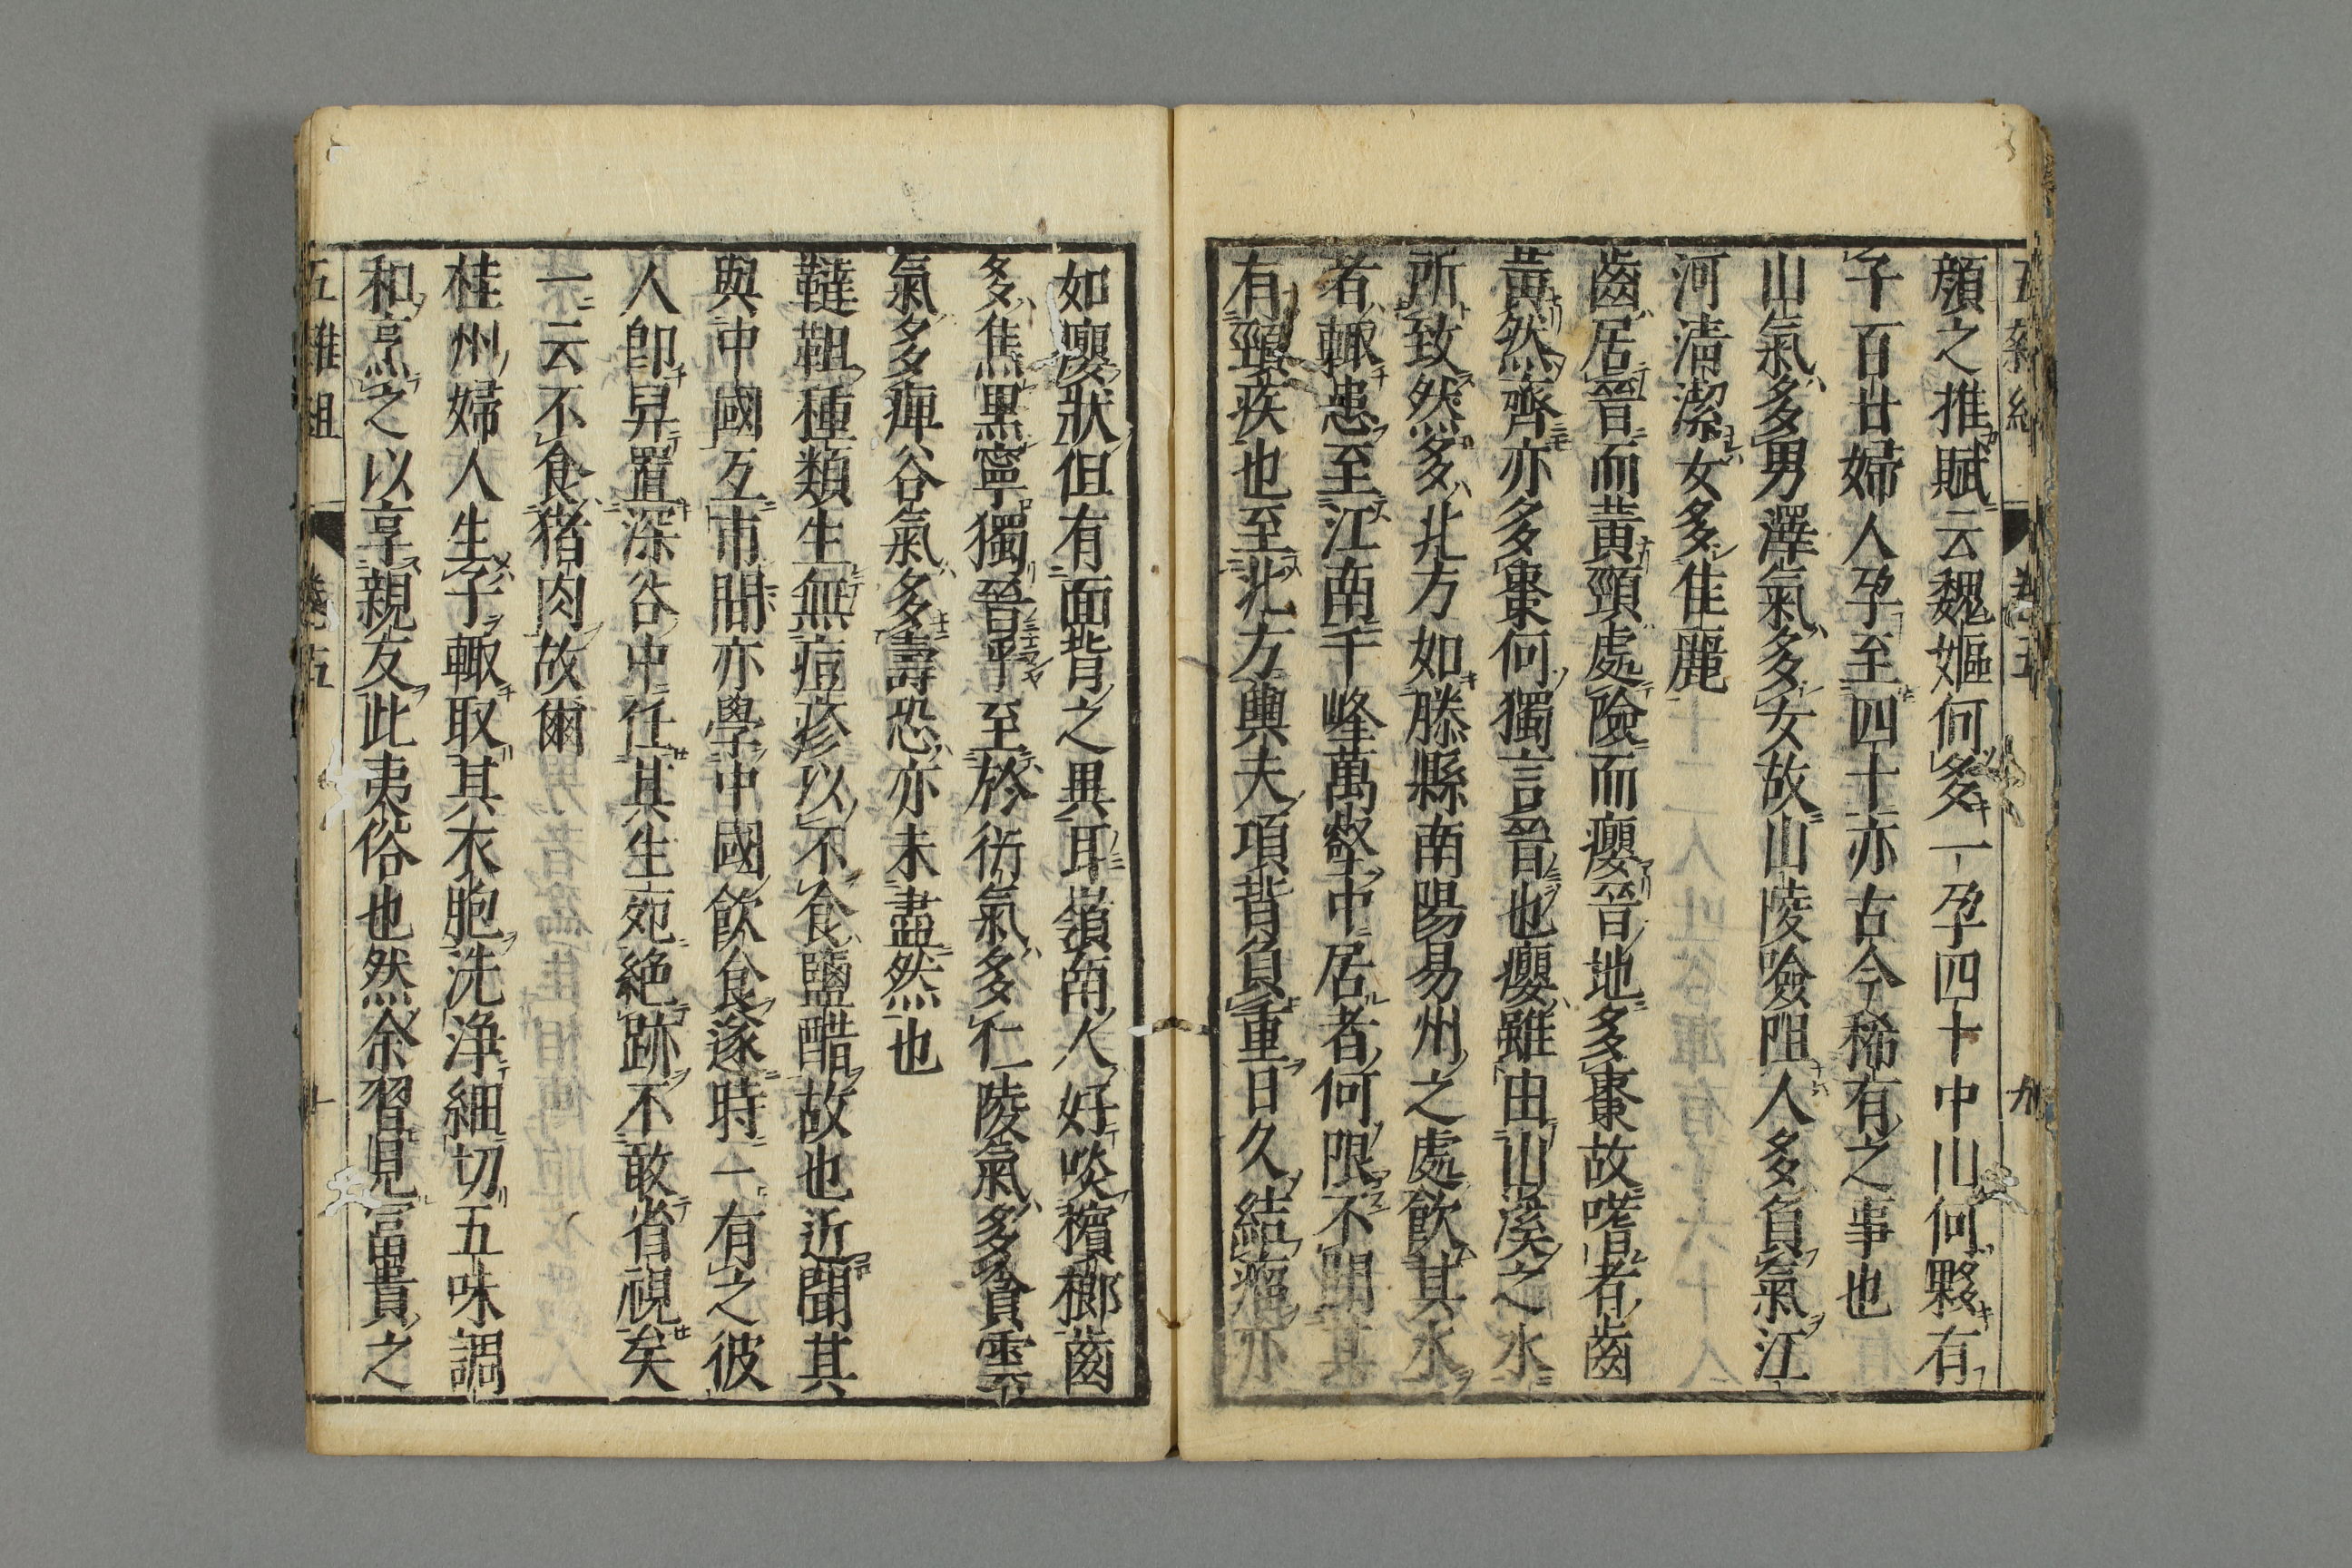 五雜組 卷五 九
顏之推賦云魏嫗何多一孕四十中山何夥有
子百廿婦人孕至四十亦古今稀有之事也
山氣多男澤氣多女故山陵險阻人多負氣江
河清潔女多佳麗
齒居晉而黃頸處險而癭晉地多棗故嗜者齒
黃然齊亦多棗何獨言晉也癭雖由山溪之水
所致然多北方如滕縣南陽易州之處飲其水
者輙患至江南千峰萬壑中居者何限不聞其
有頸疾也至北方輿夫項背負重日久結瘤亦
如癭狀但有面背之異耳嶺南人好啖檳榔齒
多焦黑寧獨晉乎至於衍氣多仁陵氣多貪雲
氣多痺谷氣多壽恐亦未盡然也
韃靼種類生無痘疹以不食鹽醋故也近聞其
與中國互市間亦學中國飲食遂時一有之彼
人卽昇置深谷中任其生死絶跡不敢省視矣
一云不食猪肉故爾
桂州婦人生子輙取其衣胞洗淨細切五味調
和烹之以享親友此夷俗也然余習見富貴之
五雜組 卷五 十